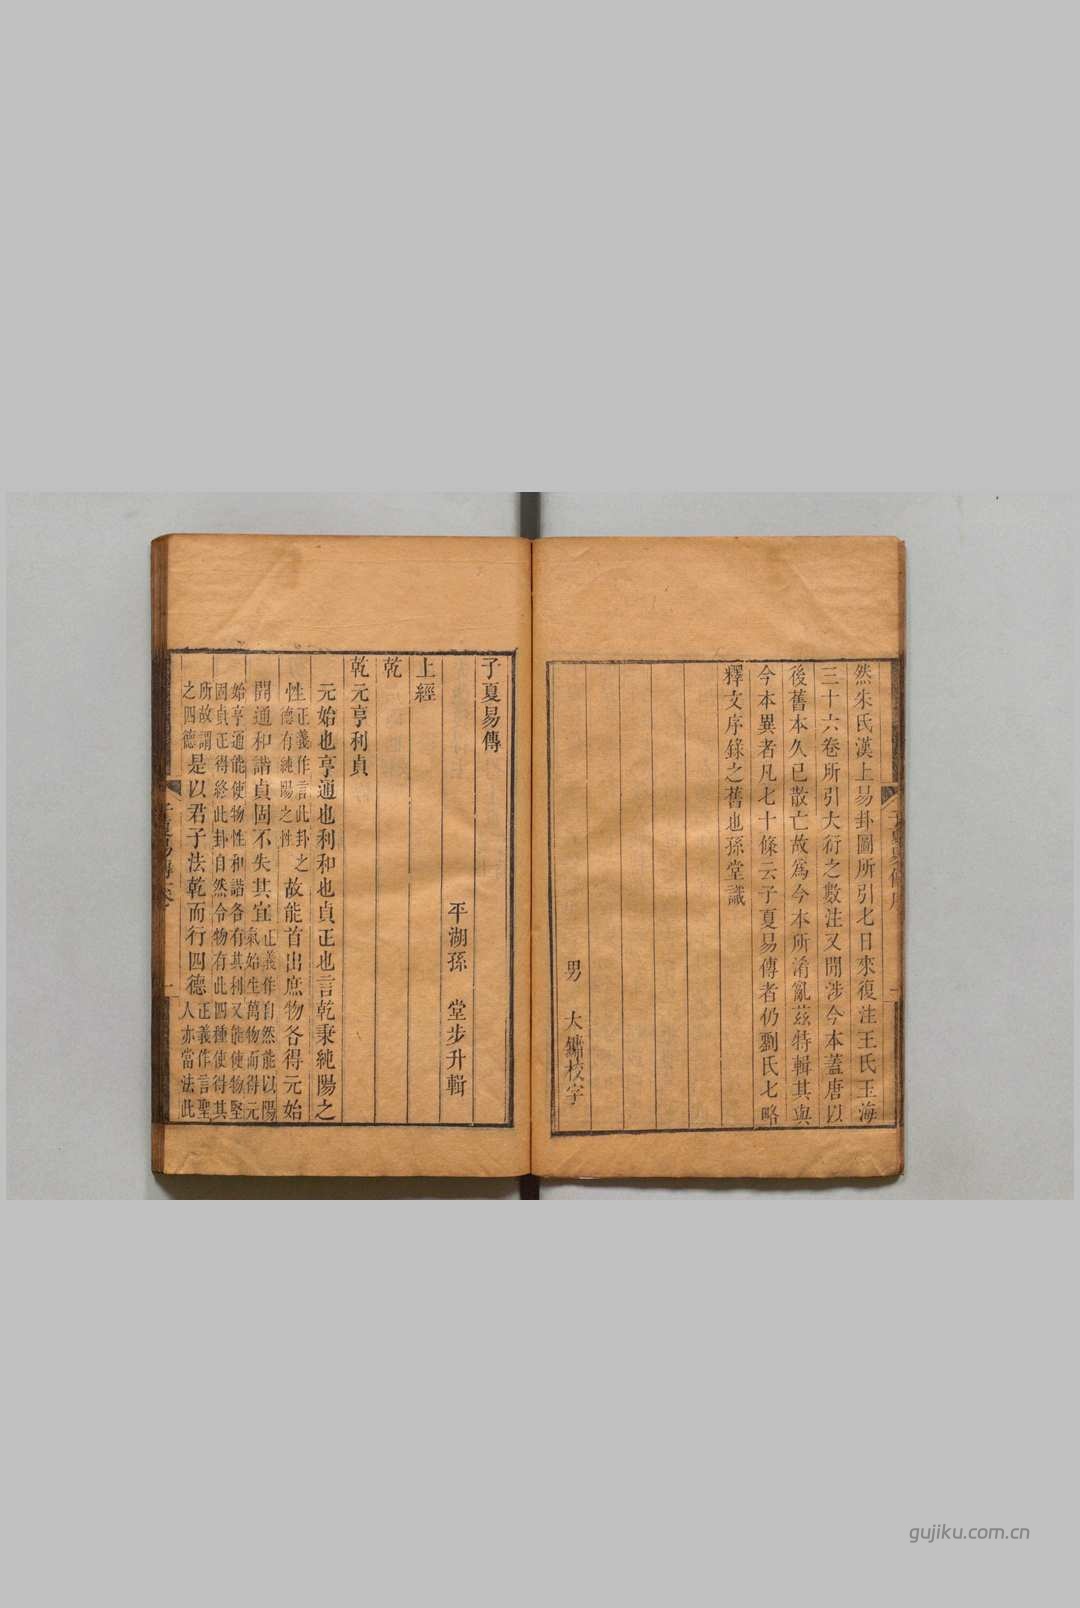 然朱氏漢上易卦圖所引七日來復注王氏玉海
三十六卷所引大衍之數注又閒涉今本蓋唐以
後舊本久已散亡故爲今本所淆亂茲特輯其與
今本異者凡七十條云子夏易傳者仍劉氏七略
釋文序錄之舊也孫堂識
男 大鏞校字
子夏易傳
平湖孫 堂步升輯
上經
乾
乾元亨利貞
元始也亨通也利和也貞正也言乾秉純陽之
性正義作言此卦之德有純陽之性故能首出庶物各得元始
開通和諧貞固不失其宜正義作自然能以陽氣始生萬物而得元
始亨通能使物性和諧各有其利又能使物堅
固貞正得終此卦自然令物有此四種使得其
所故謂之四德是以君子法乾而行四德正義作言聖人亦當法此
子夏易傳
gujiku.com.cn